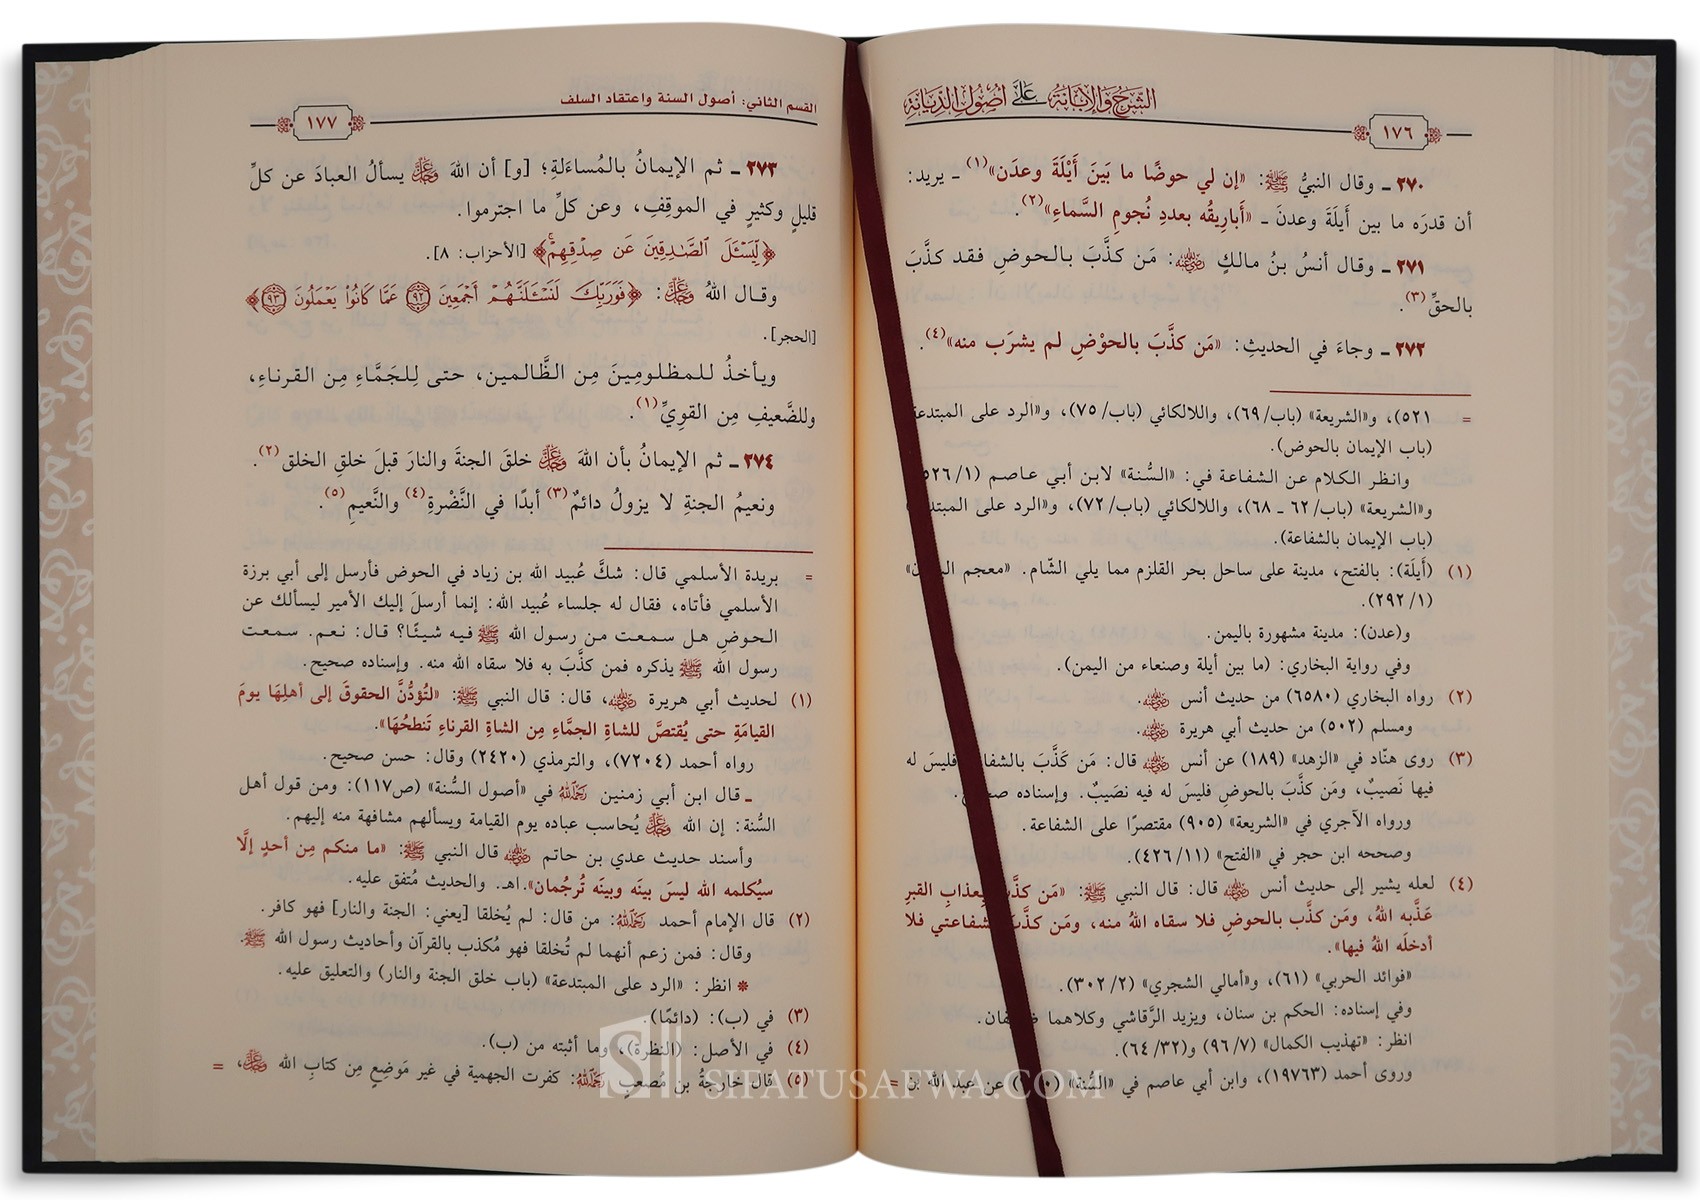 الشرح والإبانة على أصول الديانة
١٧٦
٢٧٠ ـ وقال النبيُّ ﷺ: «إن لي حوضًا ما بَينَ أَيْلَةَ وعدَن»(١) ـ يريد:
أن قدرَه ما بين أَيلَةَ وعدنَ ـ «أَبارِيقُه بعددِ نُجومِ السَّماءِ»(٢).
٢٧١ ـ وقال أنسُ بنُ مالكٍ رضي الله عنه: مَن كذَّبَ بالحوضِ فقد كذَّبَ
بالحقِّ(٣).
٢٧٢ ـ وجاءَ في الحديثِ: «مَن كذَّبَ بالحوْضِ لم يشرَب منه»(٤).
= ٥٢١)، و«الشريعة» (باب/ ٦٩)، واللالكائي (باب/ ٧٥)، و«الرد على المبتدعة»
(باب الإيمان بالحوض).
وانظر الكلام عن الشفاعة في: «السُّنة» لابن أبي عاصم (١/ ٥٢٦
و«الشريعة» (باب/ ٦٢ ـ ٦٨)، واللالكائي (باب/ ٧٢)، و«الرد على
(باب الإيمان بالشفاعة).
(١) (أَيلَة): بالفتح، مدينة على ساحل بحر القلزم مما يلي الشّام. «معجم
(١/ ٢٩٢).
و(عدن): مدينة مشهورة باليمن.
وفي رواية البخاري: (ما بين أيلة وصنعاء من اليمن).
(٢) رواه البخاري (٦٥٨٠) من حديث أنس رضي الله عنه.
ومسلم (٥٠٢) من حديث أبي هريرة رضي الله عنه.
(٣) روى هنّاد في «الزهد» (١٨٩) عن أنس رضي الله عنه قال: مَن كَذَّبَ فليسَ له
فيها نَصيبٌ، ومَن كذَّبَ بالحوضِ فليسَ له فيه نصَيبٌ. وإسناده
ورواه الآجري في «الشريعة» (٩٠٥) مقتصرًا على الشفاعة.
وصححه ابن حجر في «الفتح» (١١/ ٤٢٦).
(٤) لعله يشير إلى حديث أنس رضي الله عنه قال: قال النبي ﷺ: «مَن كذَّبَ بعذابِ القبرِ
عَذَّبه اللهُ، ومَن كذَّب بالحوضِ فلا سقاه اللهُ منه، ومَن كذَّبَ بشفاعتي فلا
أدخلَه اللهُ فيها».
«فوائد الحربي» (٦١)، و«أمالي الشجري» (٢/ ٣٠٢).
وفي إسناده: الحكم بن سنان، ويزيد الرَّقاشي وكلاهما
انظر: «تهذيب الكمال» (٧/ ٩٦) و(٣٢/ ٦٤).
وروى أحمد (١٩٧٦٣)، وابن أبي عاصم في «السُّنة» عن عبد الله بن =
القسم الثاني: أصول السنة واعتقاد السلف
١٧٧
٢٧٣ ـ ثم الإيمانُ بالمُساءَلةِ؛ [و] أن اللهَ عز وجل يسألُ العبادَ عن كلِّ
قليلٍ وكثيرٍ في الموقِفِ، وعن كلِّ ما اجترموا.
﴿لِّيَسْـَٔلَ ٱلصَّـٰدِقِينَ عَن صِدْقِهِمْ﴾ [الأحزاب: ٨].
وقال اللهُ عز وجل: ﴿فَوَرَبِّكَ لَنَسْـَٔلَنَّهُمْ أَجْمَعِينَ ٩٢ عَمَّا كَانُوا۟ يَعْمَلُونَ ٩٣﴾
[الحجر].
ويأخذُ للمظلومِينَ مِن الظَّالمين، حتى لِلجَمَّاءِ مِن القرناءِ،
وللضَّعيفِ مِن القويِّ(١).
٢٧٤ ـ ثم الإيمانُ بأن اللهَ عز وجل خلقَ الجنةَ والنارَ قبلَ خلقِ الخلق(٢).
ونعيمُ الجنةِ لا يزولُ دائمٌ(٣) أبدًا في النَّضْرةِ(٤) والنَّعيمِ(٥).
= بريدة الأسلمي قال: شكَّ عُبيد الله بن زياد في الحوض فأرسل إلى أبي برزة
الأسلمي فأتاه، فقال له جلساء عُبيد الله: إنما أرسلَ إليك الأمير ليسألك عن
الحوضِ هل سمعت من رسول الله ﷺ فيه شيئًا؟ قال: نعم. سمعت
رسول الله ﷺ يذكره فمن كذَّبَ به فلا سقاه الله منه. وإسناده صحيح.
(١) لحديث أبي هريرة رضي الله عنه، قال: قال النبي ﷺ: «لتُؤدُّنَّ الحقوقَ إلى أهلِهَا يومَ
القيامَةِ حتى يُقتصَّ للشاةِ الجمَّاءِ مِن الشاةِ القرناءِ تَنطحُهَا».
رواه أحمد (٧٢٠٤)، والترمذي (٢٤٢٠) وقال: حسن صحيح.
ـ قال ابن أبي زمنين رحمه الله في «أصول السُّنة» (ص١١٧): ومن قول أهل
السُّنة: إن الله عز وجل يُحاسب عباده يوم القيامة ويسألهم مشافهة منه إليهم.
وأسند حديث عدي بن حاتم رضي الله عنه قال النبي ﷺ: «ما منكم مِن أحدٍ إلَّا
سيُكلمه الله ليسَ بينَه وبينَه تُرجُمان».اهـ. والحديث مُتفق عليه.
(٢) قال الإمام أحمد رحمه الله: من قال: لم يُخلقا [يعني: الجنة والنار] فهو كافر.
وقال: فمن زعم أنهما لم تُخلقا فهو مُكذب بالقرآن وأحاديث رسول الله ﷺ.
* انظر: «الرد على المبتدعة» (باب خلق الجنة والنار) والتعليق عليه.
(٣) في (ب): (دائمًا).
(٤) في الأصل: (النظرة)، وما أثبته من (ب).
(٥) قال خارجةُ بن مُصعبٍ رحمه الله: كفرت الجهمية في غير مَوضِعٍ مِن كتابِ الله عز وجل، =
SIFATUSAFWA.COM